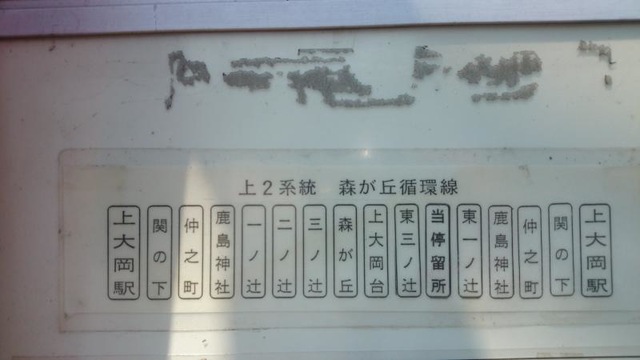 上2系統 森が丘循環線
上大岡駅
関の下
仲之町
鹿島神社
一ノ辻
二ノ辻
三ノ辻
森が丘
上大岡台
東三ノ辻
当停留所
東一ノ辻
鹿島神社
仲之町
関の下
上大岡駅